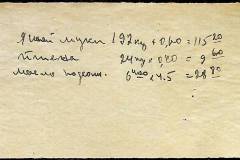 муки 192 кг × 0,60 = 115 20
пшена 24 кг × 0,40 = 9 60
масло подсолн. 6 400 × 4.5 = 28 80